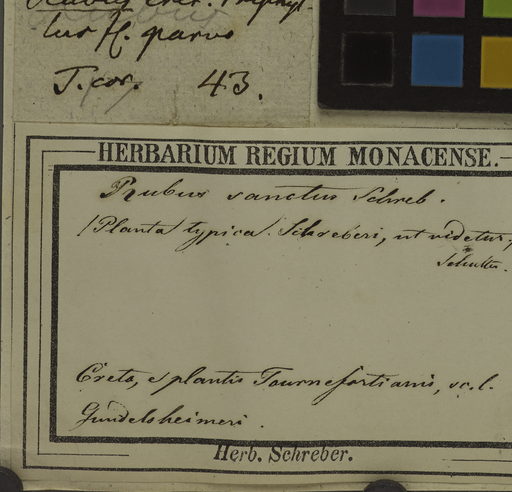 Rubus cret. triphyl-
lus fl. parvo
T. cor. 43.
HERBARIUM REGIUM MONACENSE.
Rubus sanctus Schreb.
(Planta typica Schreberi, ut videtur,
Creta, e plantis Tournefortianis, sc. l.
Gundelsheimeri.
Herb. Schreber.